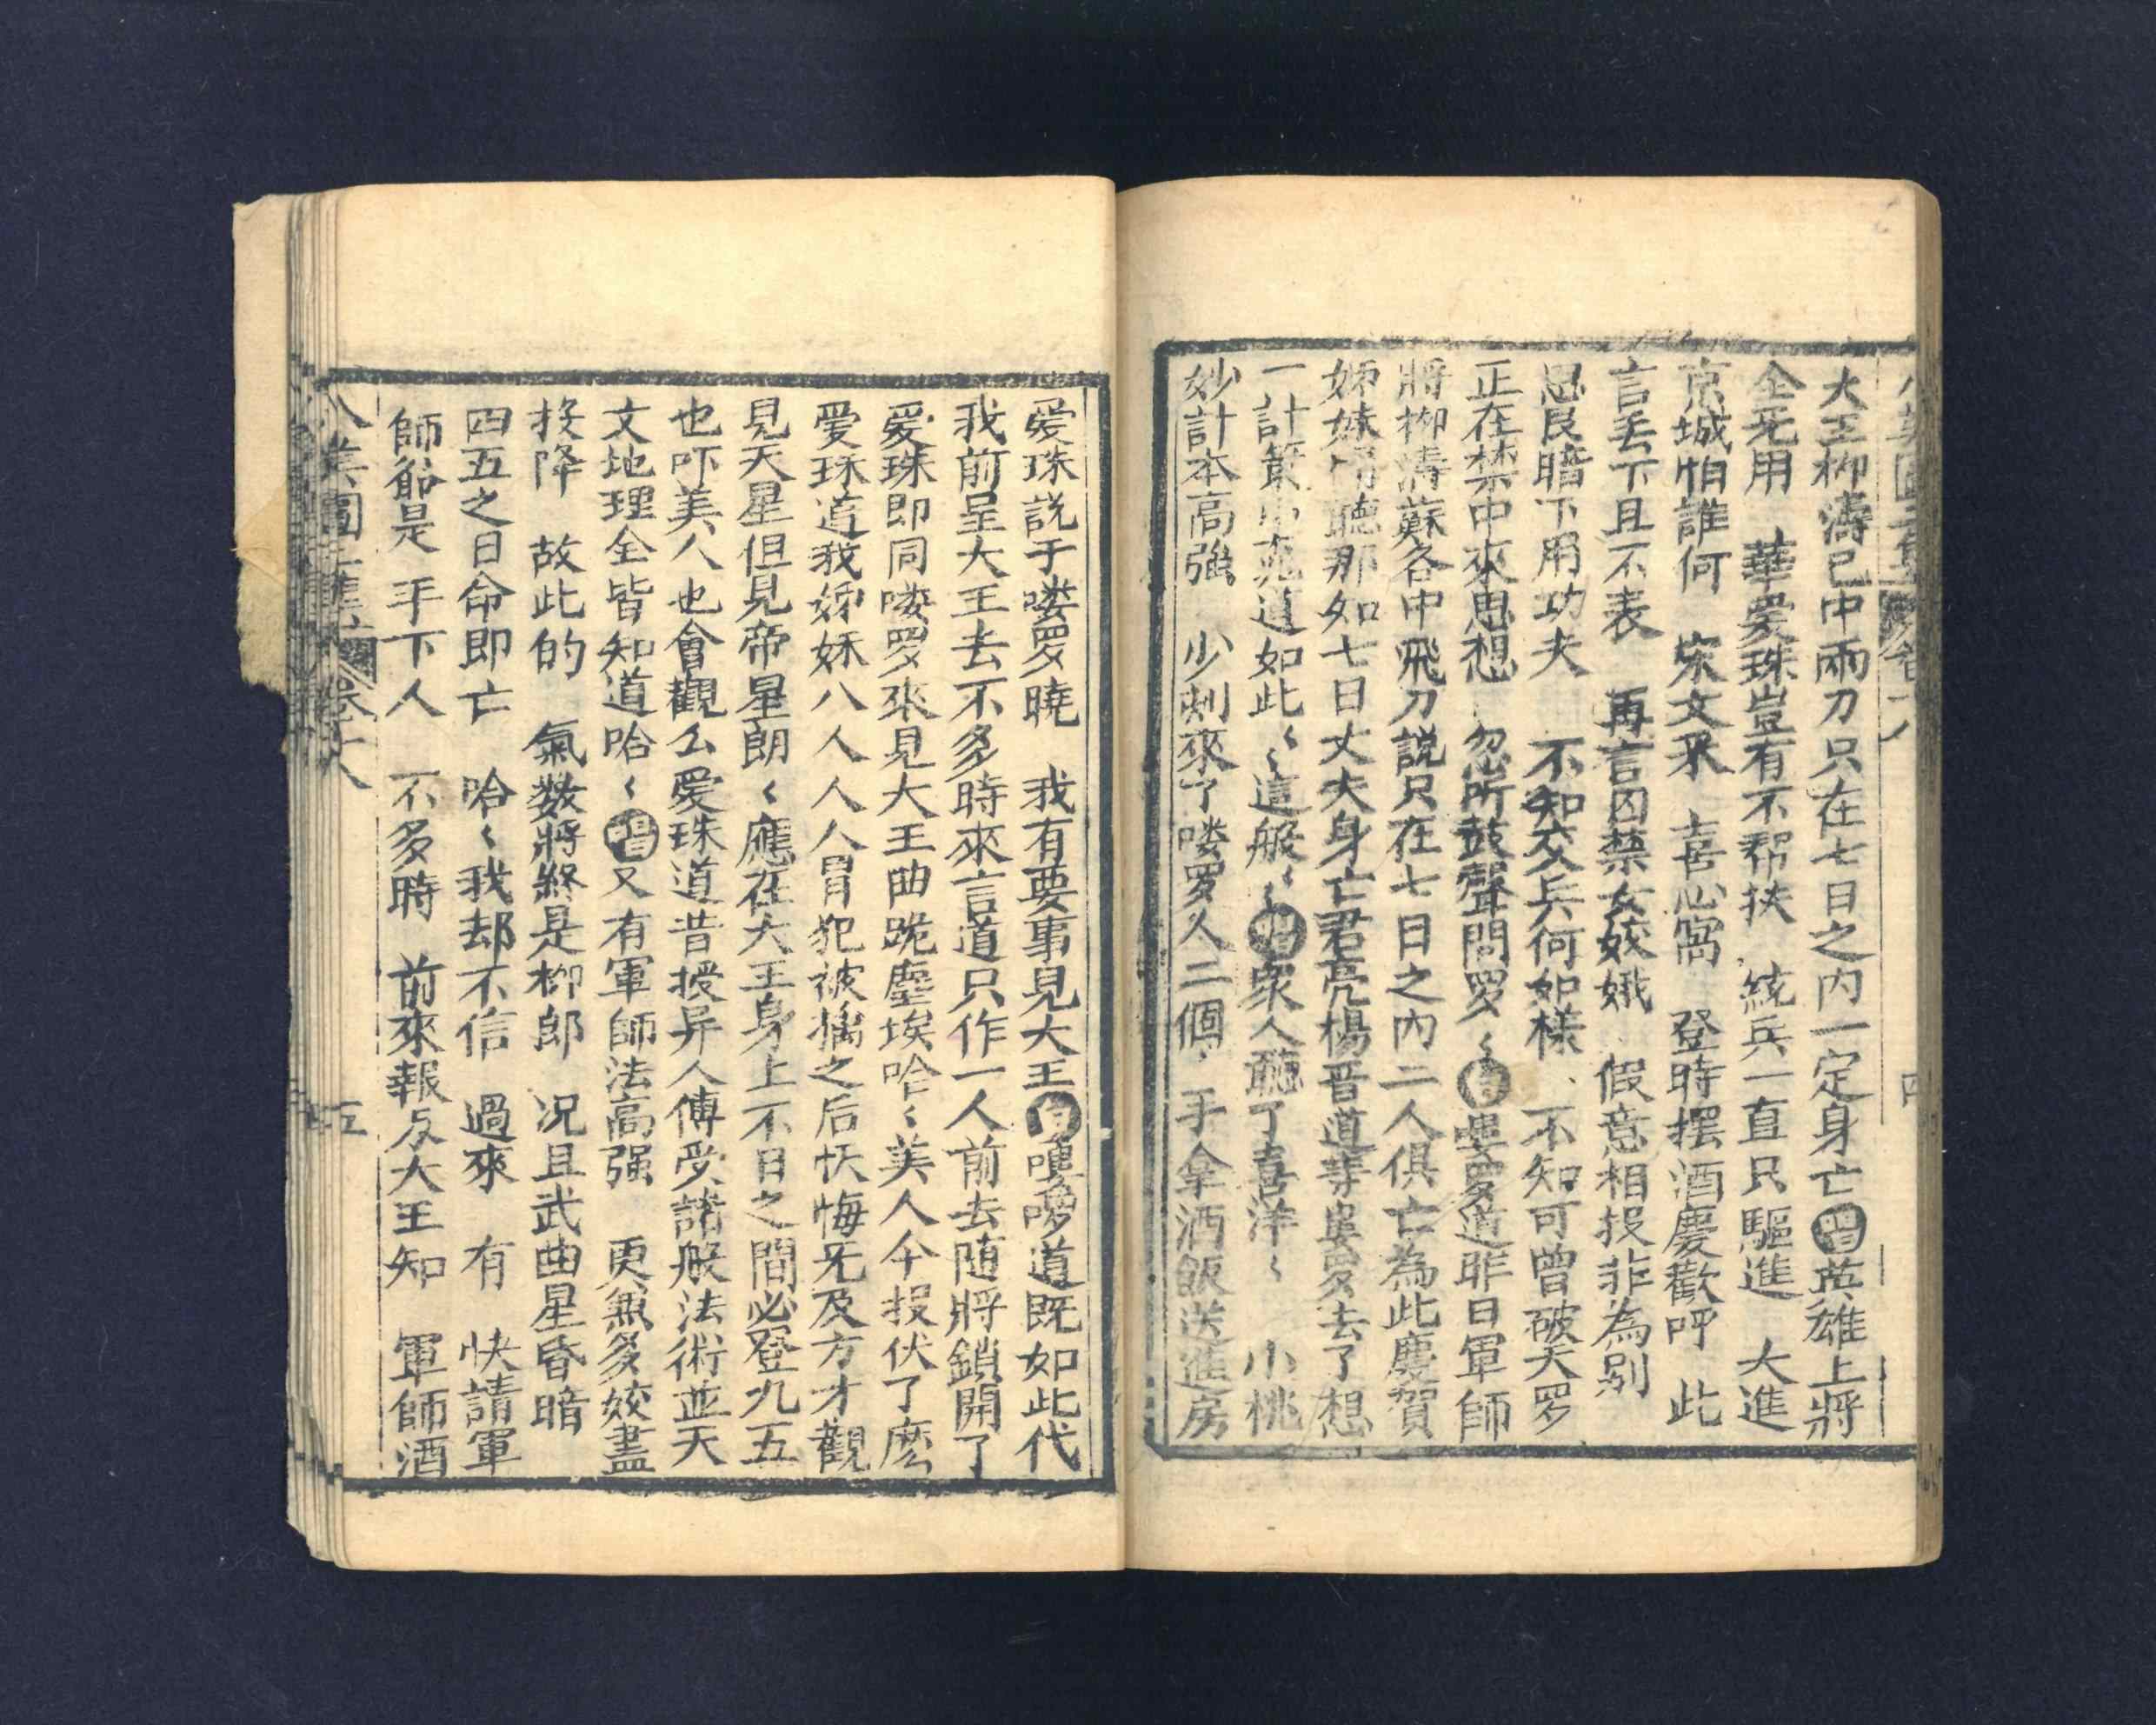 大王柳濤已中兩刀只在七日之内一定身亡唱英雄上將
全无用 華爱珠豈有不帮扶 統兵一直只驅進 大進
京城怕誰何 宋文采 喜心窩 登時摆酒慶歡呼 此
言丢下且不表 再言囚禁女姣娥 假意相投非為别
思良暗下用功夫 不知交兵何如樣 不知可曾破天罗
正在禁中來思想 忽听鼓聲問罗〻白婁罗道昨日軍師
將柳濤蘇各中飛刀説只在七日之内二人俱亡為此慶賀
姊妹聽那如七日丈夫身亡君亮楊晋道等婁罗去了想
一計策道如此〻這般〻唱衆人聽了喜洋〻 小桃
妙計本高強 少刻來了喽罗人二個 手拿酒飯送進房
爱珠説于喽罗曉 我有要事見大王白嘍啰道既如此代
我前呈大王去不多時來言道只作一人前去随將鎖開了
爱珠即同喽罗來見大王曲跪塵埃哈〻美人今投伏了麽
爱珠道我姊妹八人人人冒犯被擒之后恢悔无及方才觀
見天星但見帝星朗〻應在大王身上不日之間必登九五
也吓美人也會觀么爱珠道昔授异人傳受諸般法術並天
文地理全皆知道哈〻唱又有軍師法高强 更兼多姣盡
投降 故此的 氣数將終是柳郎 况且武曲星昏暗
四五之日命即亡 哈〻我却不信 過來 有 快請軍
師船是 手下人 不多時 前來報反大王知 軍師酒
八美圖 卷十八 五